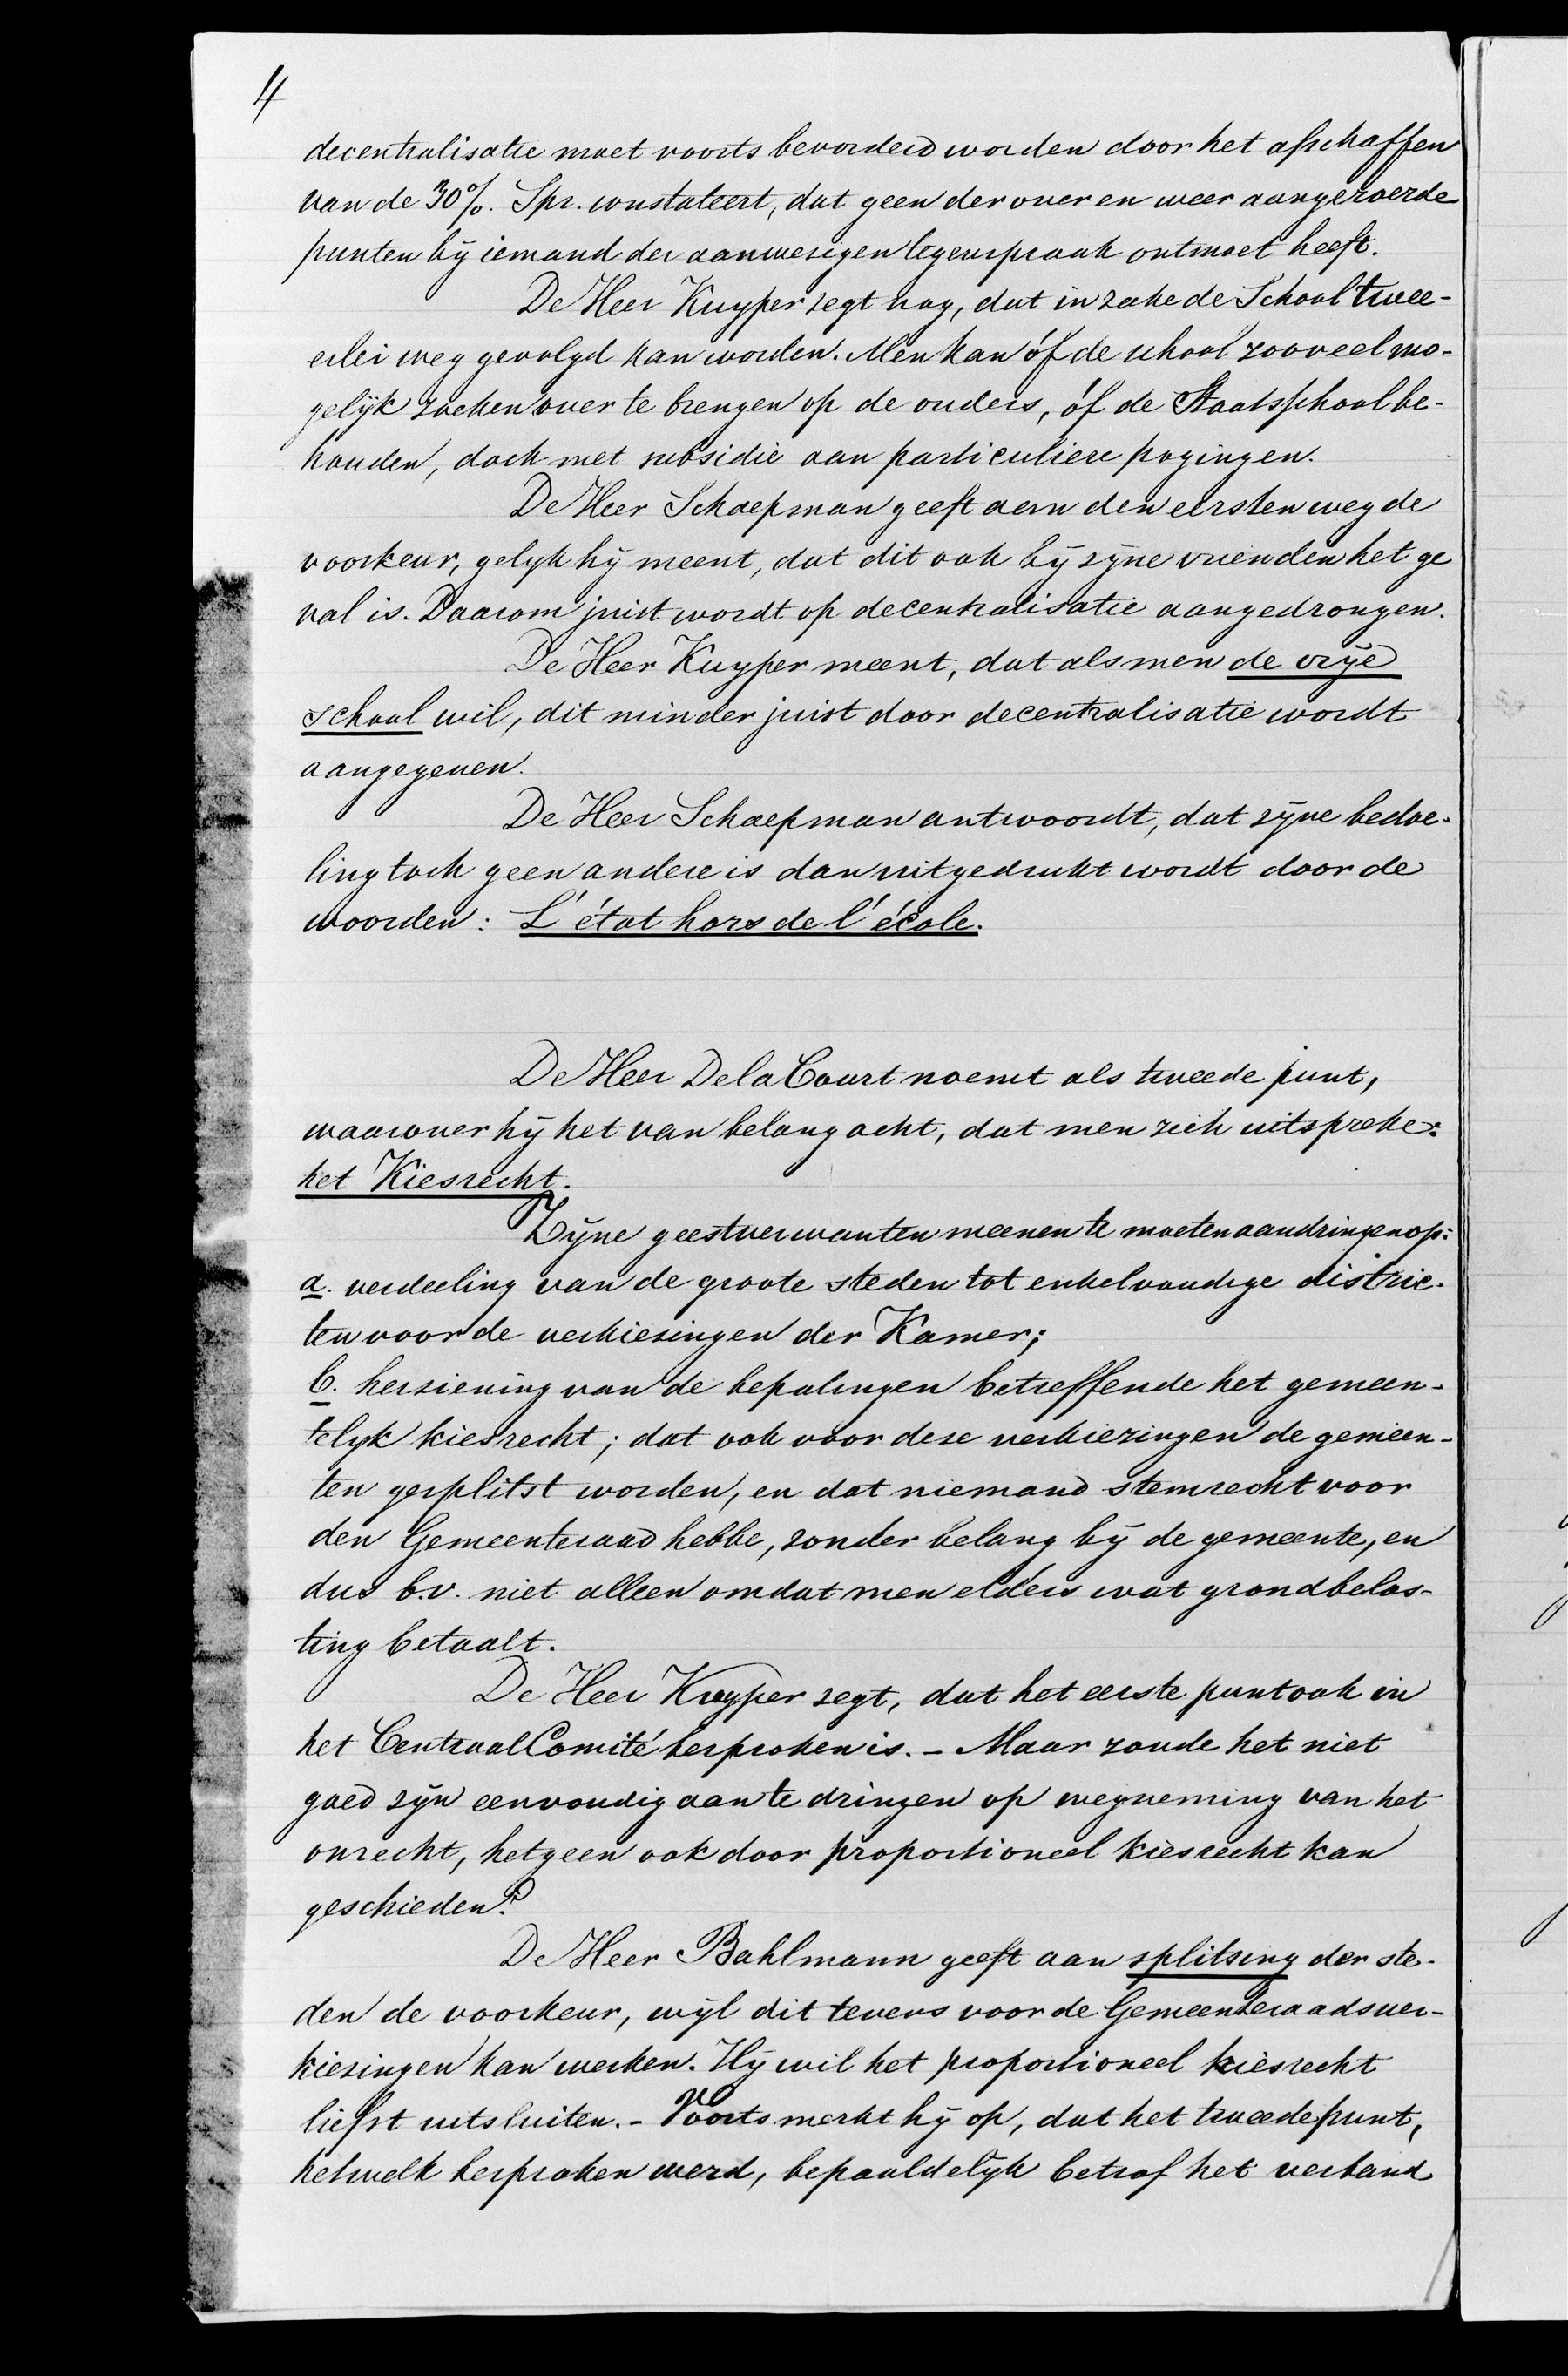 4
decentralisatie moet voorts bevorderd worden door het afschaffen
van de 30%. Spr. constateert, dat geen der over en weer aangeroerde
punten bij iemand der aanwezigen tegenspraak ontmoet heeft.
De Heer Kuyper zegt nog, dat in zake de School twee-
erlei weg gevolgd kan worden. Men kan óf de school zooveel mo-
gelijk zoeken over te brengen op de ouders, óf de Staatsschool be-
houden, doch met subsidie aan particuliere pogingen.
De Heer Schaepman geeft aan den eersten weg de
voorkeur, gelijk hij meent, dat dit ook bij zijne vrienden het ge
val is. Daarom juist wordt op decentralisatie aangedrongen.
De Heer Kuyper meent, dat als men de vrije
school wil, dit minder juist door decentralisatie wordt
aangegeven.
De Heer Schaepman antwoordt, dat zijne bedoe-
ling toch geen andere is dan uitgedrukt wordt door de
woorden: L'état hors de l'école.
De Heer De la Court noemt als tweede punt,
waarover hij het van belang acht, dat men zich uitspreke:
het Kiesrecht.
Zijne geestverwanten meenen te moeten aandringen op:
a. verdeeling van de groote steden tot enkelvoudige distric-
ten voor de verkiezingen der Kamer;
b. herziening van de bepalingen betreffende het gemeen-
telijk kiesrecht; dat ook voor deze verkiezingen de gemeen-
ten gesplitst worden, en dat niemand stemrecht voor
den Gemeenteraad hebbe, zonder belang bij de gemeente, en
dus b.v. niet alleen omdat men elders wat grondbelas-
ting betaalt.
De Heer Kuyper zegt, dat het eerste punt ook in
het Centraal Comité besproken is. - Maar zoude het niet
goed zijn eenvoudig aan te dringen op wegneming van het
onrecht, hetgeen ook door proportioneel kiesrecht kan
geschieden?
De Heer Bahlmann geeft aan splitsing der ste-
den de voorkeur, wijl dit tevens voor de Gemeenteraadsver-
kiezingen kan werken. Hij wil het proportioneel kiesrecht
liefst uitsluiten. - Voorts merkt hij op, dat het tweede punt,
hetwelk besproken werd, bepaaldelijk betrof het verband